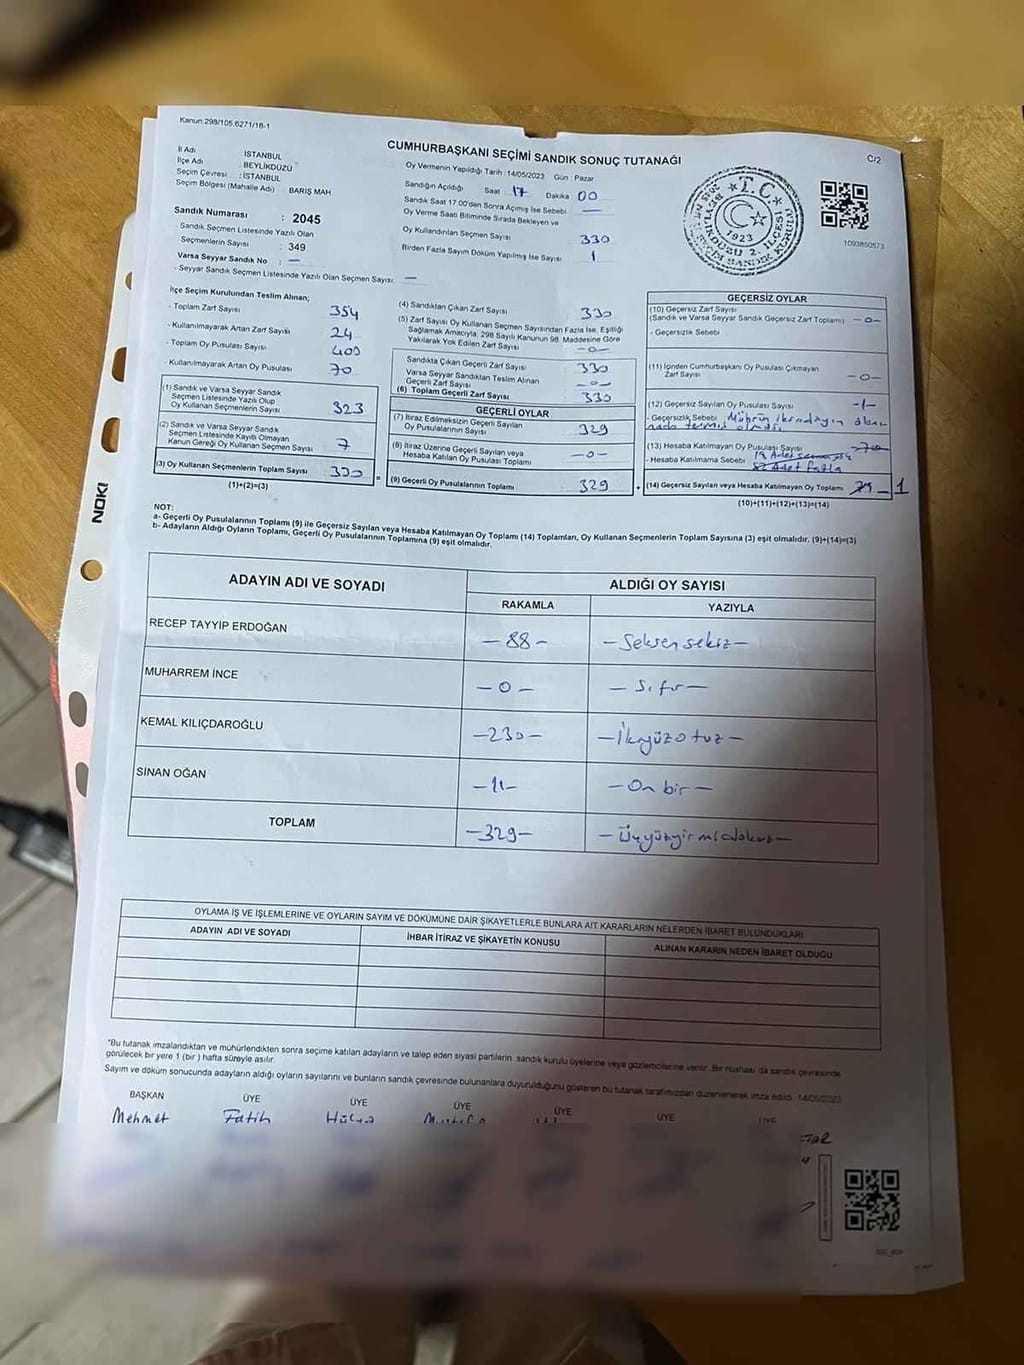 Kanun:298/105,6271/18-1
CUMHURBAŞKANI SEÇİMİ SANDIK SONUÇ TUTANAĞI
C/2
İl Adı : İSTANBUL
İlçe Adı : BEYLİKDÜZÜ
Seçim Çevresi : İSTANBUL
Seçim Bölgesi (Mahalle Adı) BARIŞ MAH.
Sandık Numarası : 2045
- Sandık Seçmen Listesinde Yazılı Olan
Seçmenlerin Sayısı : 349
Varsa Seyyar Sandık No : —
- Seyyar Sandık Seçmen Listesinde Yazılı Olan Seçmen Sayısı: —
Oy Vermenin Yapıldığı Tarih : 14/05/2023 Gün : Pazar
Sandığın Açıldığı Saat : 17 Dakika : 00
Sandık Saat 17.00'den Sonra Açılmış İse Sebebi —
Oy Verme Saati Bitiminde Sırada Bekleyen ve
Oy Kullandırılan Seçmen Sayısı 330
Birden Fazla Sayım Döküm Yapılmış İse Sayısı 1
T.C.
1923
BEYLİKDÜZÜ 2. İLÇESİ
1093850573
İlçe Seçim Kurulundan Teslim Alınan;
- Toplam Zarf Sayısı 354
- Kullanılmayarak Artan Zarf Sayısı 24
- Toplam Oy Pusulası Sayısı 400
- Kullanılmayarak Artan Oy Pusulası 70
(1) Sandık ve Varsa Seyyar Sandık
Seçmen Listesinde Yazılı Olup
Oy Kullanan Seçmenlerin Sayısı 323
(2) Sandık ve Varsa Seyyar Sandık
Seçmen Listesinde Kayıtlı Olmayan
Kanun Gereği Oy Kullanan Seçmen Sayısı 7
(3) Oy Kullanan Seçmenlerin Toplam Sayısı 330
(1)+(2)=(3)
(4) Sandıktan Çıkan Zarf Sayısı 330
(5) Zarf Sayısı Oy Kullanan Seçmen Sayısından Fazla İse, Eşitliği
Sağlamak Amacıyla, 298 Sayılı Kanunun 98. Maddesine Göre
Yakılarak Yok Edilen Zarf Sayısı -0-
Sandıkta Çıkan Geçerli Zarf Sayısı 330
Varsa Seyyar Sandıktan Teslim Alınan
Geçerli Zarf Sayısı -0-
(6) Toplam Geçerli Zarf Sayısı 330
GEÇERLİ OYLAR
(7) İtiraz Edilmeksizin Geçerli Sayılan
Oy Pusulalarının Sayısı 329
(8) İtiraz Üzerine Geçerli Sayılan veya
Hesaba Katılan Oy Pusulası Toplamı -0-
= (9) Geçerli Oy Pusulalarının Toplamı 329
GEÇERSİZ OYLAR
(10) Geçersiz Zarf Sayısı
(Sandık ve Varsa Seyyar Sandık Geçersiz Zarf Toplamı) -0-
- Geçersizlik Sebebi
(11) İçinden Cumhurbaşkanı Oy Pusulası Çıkmayan
Zarf Sayısı -0-
(12) Geçersiz Sayılan Oy Pusulası Sayısı -1-
- Geçersizlik Sebebi : Mührün
olması
(13) Hesaba Katılmayan Oy Pusulası Sayısı -70-
- Hesaba Katılmama Sebebi
Adet fazla
(14) Geçersiz Sayılan veya Hesaba Katılmayan Oy Toplamı 1
(10)+(11)+(12)+(13)=(14)
NOT:
a- Geçerli Oy Pusulalarının Toplamı (9) ile Geçersiz Sayılan veya Hesaba Katılmayan Oy Toplamı (14) Toplamları, Oy Kullanan Seçmenlerin Toplam Sayısına (3) eşit olmalıdır. (9)+(14)=(3)
b- Adayların Aldığı Oyların Toplamı, Geçerli Oy Pusulalarının Toplamına (9) eşit olmalıdır.
NOKI
ADAYIN ADI VE SOYADI ALDIĞI OY SAYISI
RAKAMLA YAZIYLA
RECEP TAYYİP ERDOĞAN -88- -Seksensekiz-
MUHARREM İNCE -0- -Sıfır-
KEMAL KILIÇDAROĞLU -230- -İkiyüzotuz-
SİNAN OĞAN -11- -On bir-
TOPLAM -329- -Üçyüzyirmidokuz-
OYLAMA İŞ VE İŞLEMLERİNE VE OYLARIN SAYIM VE DÖKÜMÜNE DAİR ŞİKAYETLERLE BUNLARA AİT KARARLARIN NELERDEN İBARET BULUNDUKLARI
ADAYIN ADI VE SOYADI İHBAR İTİRAZ VE ŞİKAYETİN KONUSU ALINAN KARARIN NEDEN İBARET OLDUĞU
"Bu tutanak imzalandıktan ve mühürlendikten sonra seçime katılan adayların ve talep eden siyasi partilerin sandık kurulu üyelerine veya gözlemcilerine verilir. Bir nüshası da sandık çevresinde
görülecek bir yere 1 (bir) hafta süreyle asılır.
Sayım ve döküm sonucunda adayların aldığı oyların sayılarını ve bunların sandık çevresinde bulunanlara duyurulduğunu gösteren bu tutanak tarafımızdan düzenlenerek imza edildi. 14/05/2023
BAŞKAN ÜYE ÜYE ÜYE ÜYE ÜYE ÜYE
Mehmet Fatih Hülya Mustafa